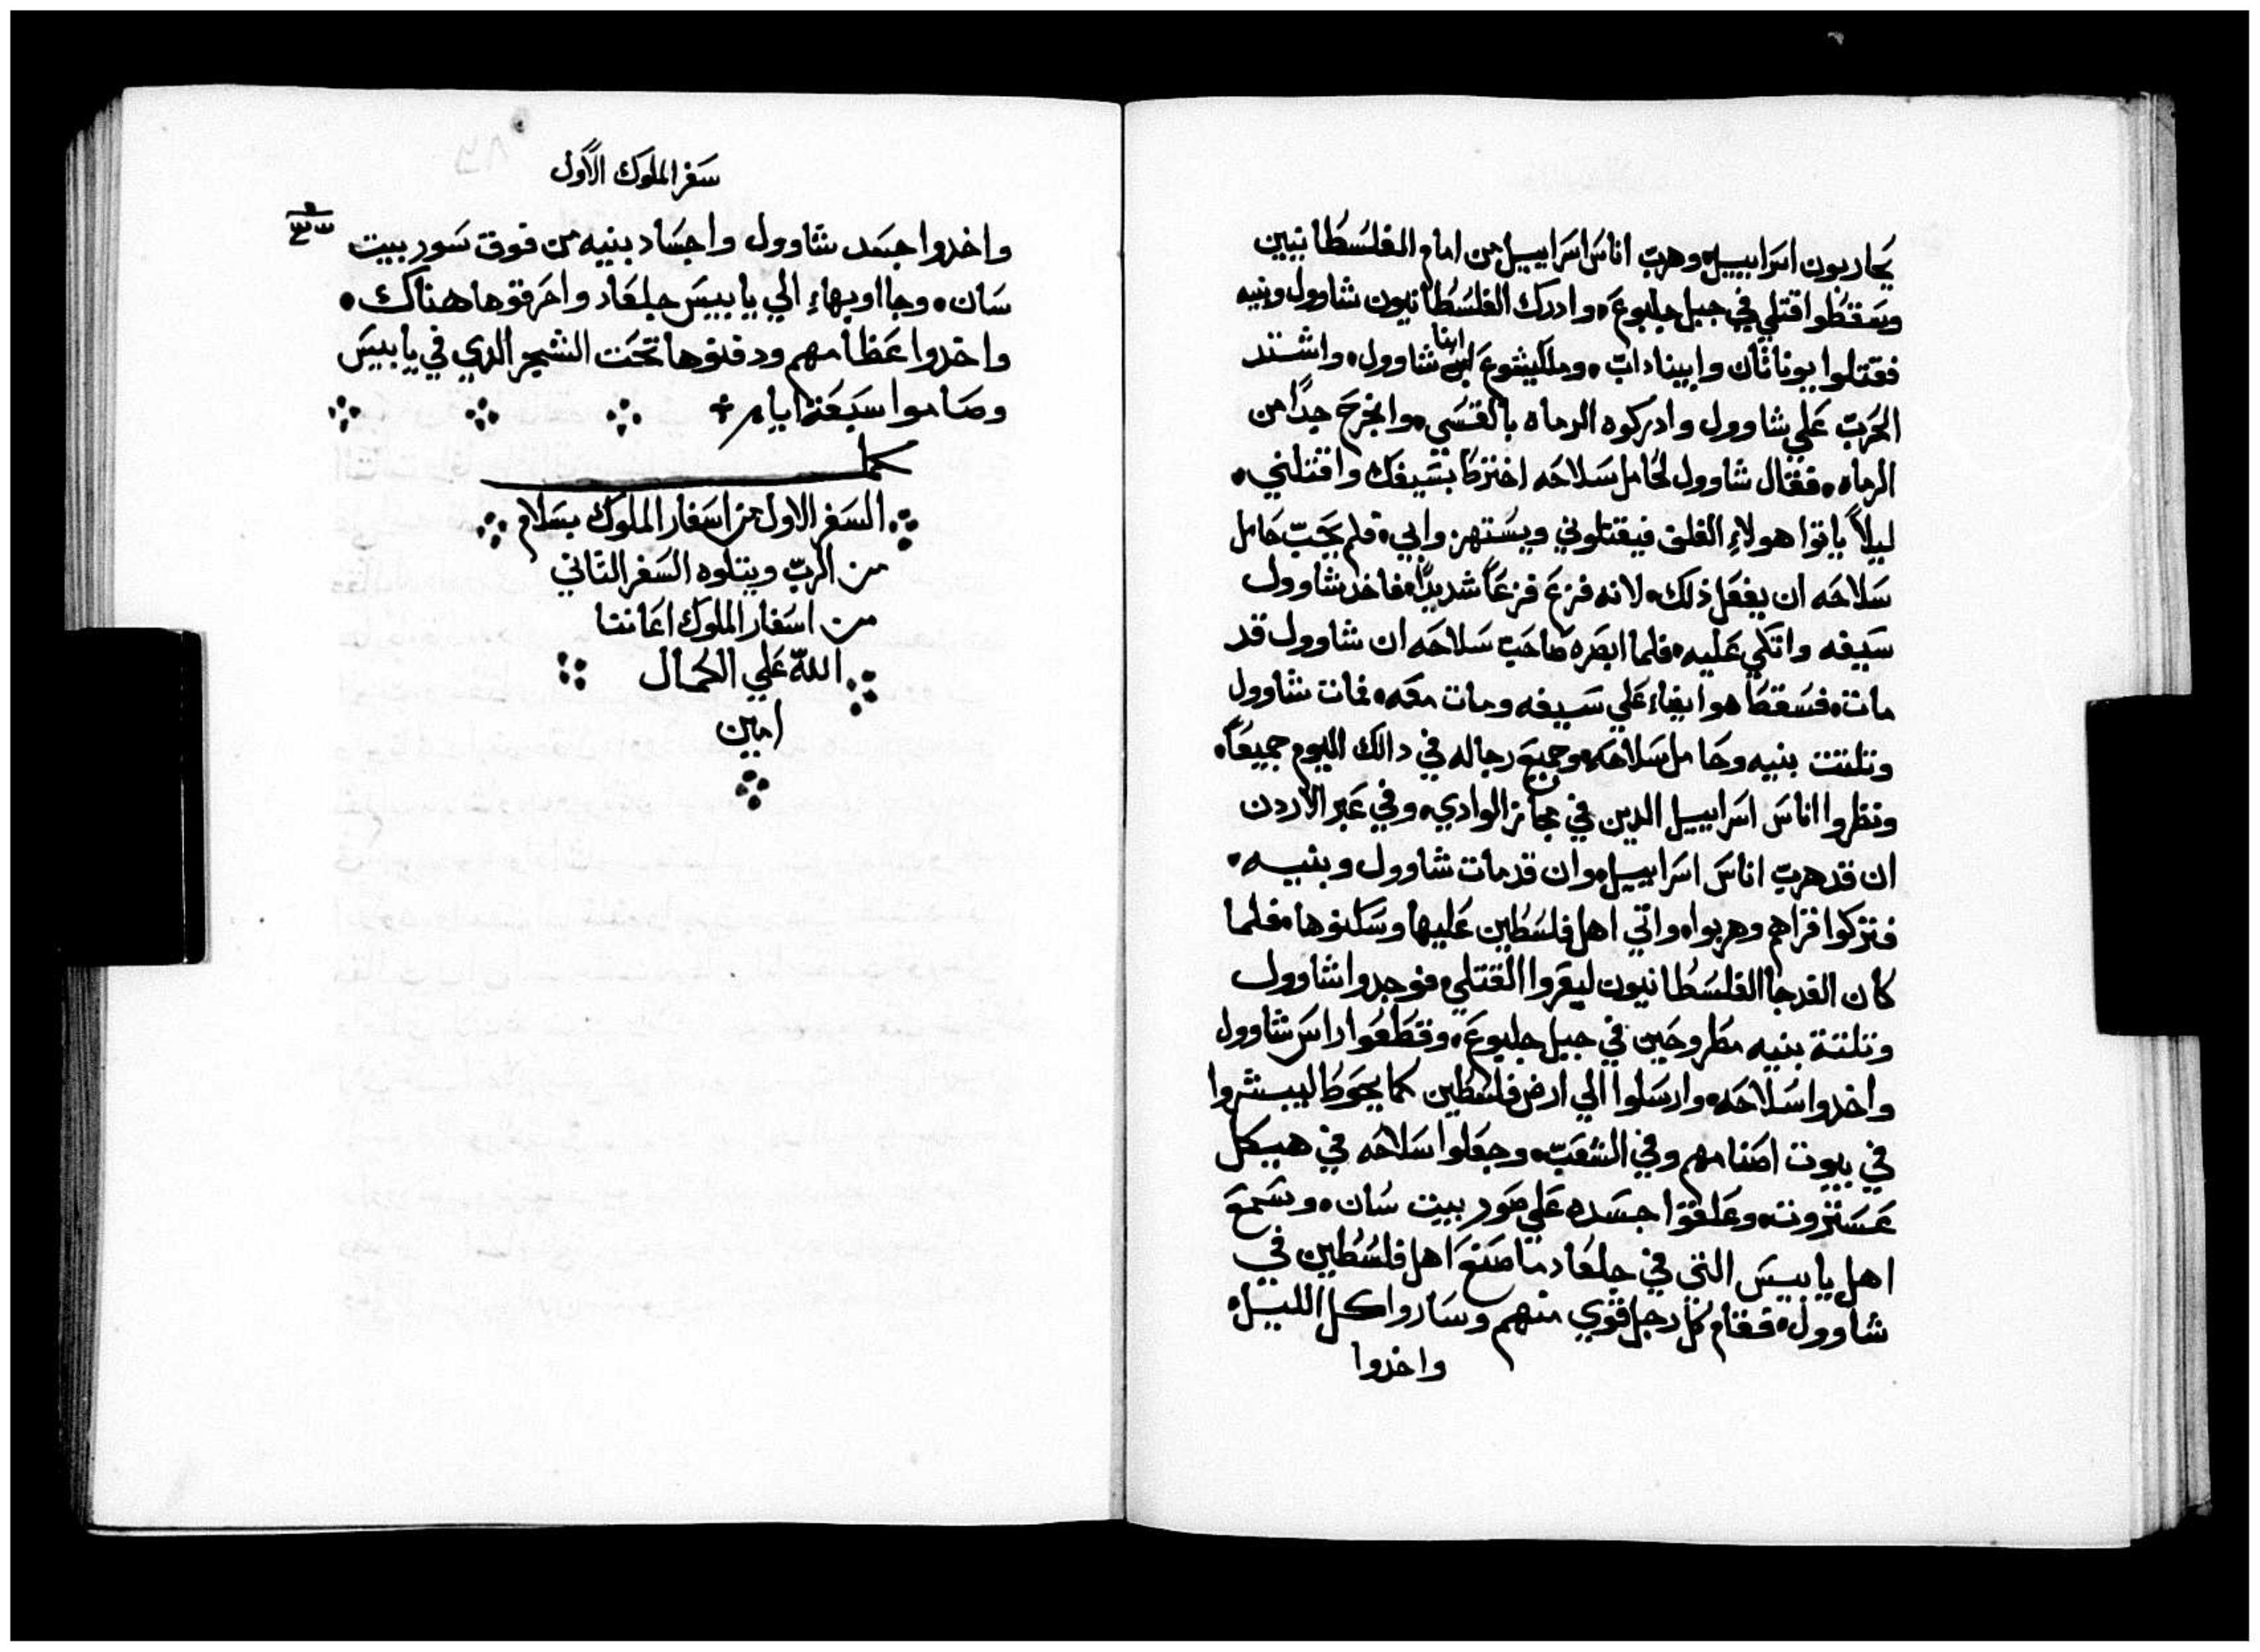 يحاربون اسراييل۰ وهرب اناس اسراييل من امام الفلسطانيين
وسقطوا قتلي في جبل جلبوع۰ وادرك الفلسطانيون شاوول وبنيه
فقتلوا يوناثان وابيناداب۰ وملكيشوع ابنا شاوول۰ واشتد
الحرب علي شاوول وادركوه الرماه بالقسي۰ وانجرح جدًا من
الرماه۰ فقال شاوول لحامل سلاحه اخترط بسيفك واقتلني۰
ليلاً ياتوا هولاءِ الغلف فيقتلوني ويستهزوابي۰ فلم يحب حامل
سلاحه ان يفعل ذلك۰ لانه فزع فزعاً شديدًا۰ فاخد شاوول
سيفه واتكي عليه۰ فلما ابصره صاحب سلاحه ان شاوول قد
مات۰ فسقط هو ايضاء علي سيفه ومات معه۰ فمات شاوول
وتلتت بنيه وحامل سلاحه۰ وجميع رجاله في دالك اليوم جميعاً۰
ونظروا اناس اسراييل الدين في مجاز الوادي۰ وفي عبر الاردن
ان قد هرب اناس اسراييل۰ وان قد مات شاوول وبنيه۰
فتركوا قراهم وهربوا۰ واتي اهل فلسطين عليها وسكنوها۰ فلما
كان الغد جا الفلسطانيون ليعروا القتلي۰ فوجدوا شاوول
وتلتة بنيه مطروحين في جبل جلبوع۰ وقطعوا راس شاوول
واخدوا سلاحه۰ وارسلوا الي ارض فلسطين كما يحوط ليبشروا
في بيوت اصنامهم وفي الشعب۰ وجعلوا سلاحه في هيكل
عستروت۰ وعلقوا جسده علي صور بيت سان۰ وسمع
اهل يابيس التي في جلعاد ما صنع اهل فلسطين في
شاوول۰ فقام كل رجل قوي منهم وساروا كل الليل۰
واخدوا
سفر الملوك الاول
واخدوا جسد شاوول واجساد بنيه من فوق سور بيت
سان۰ وجااوبهاءِ الي يابيس جلعاد واحرقوها هناك۰
واخدوا عظامهم ودفنوها تحت الشجر الدي في يابيس
وصاموا سبعة ايام
كمل
السفر الاول من اسفار الملوك بسلام
من الرب ويتلوه السفر التاني
من اسفار الملوك اعاننا
الله علي الكمال
امين